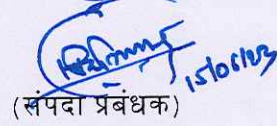 15/06/23
(संपदा प्रबंधक)